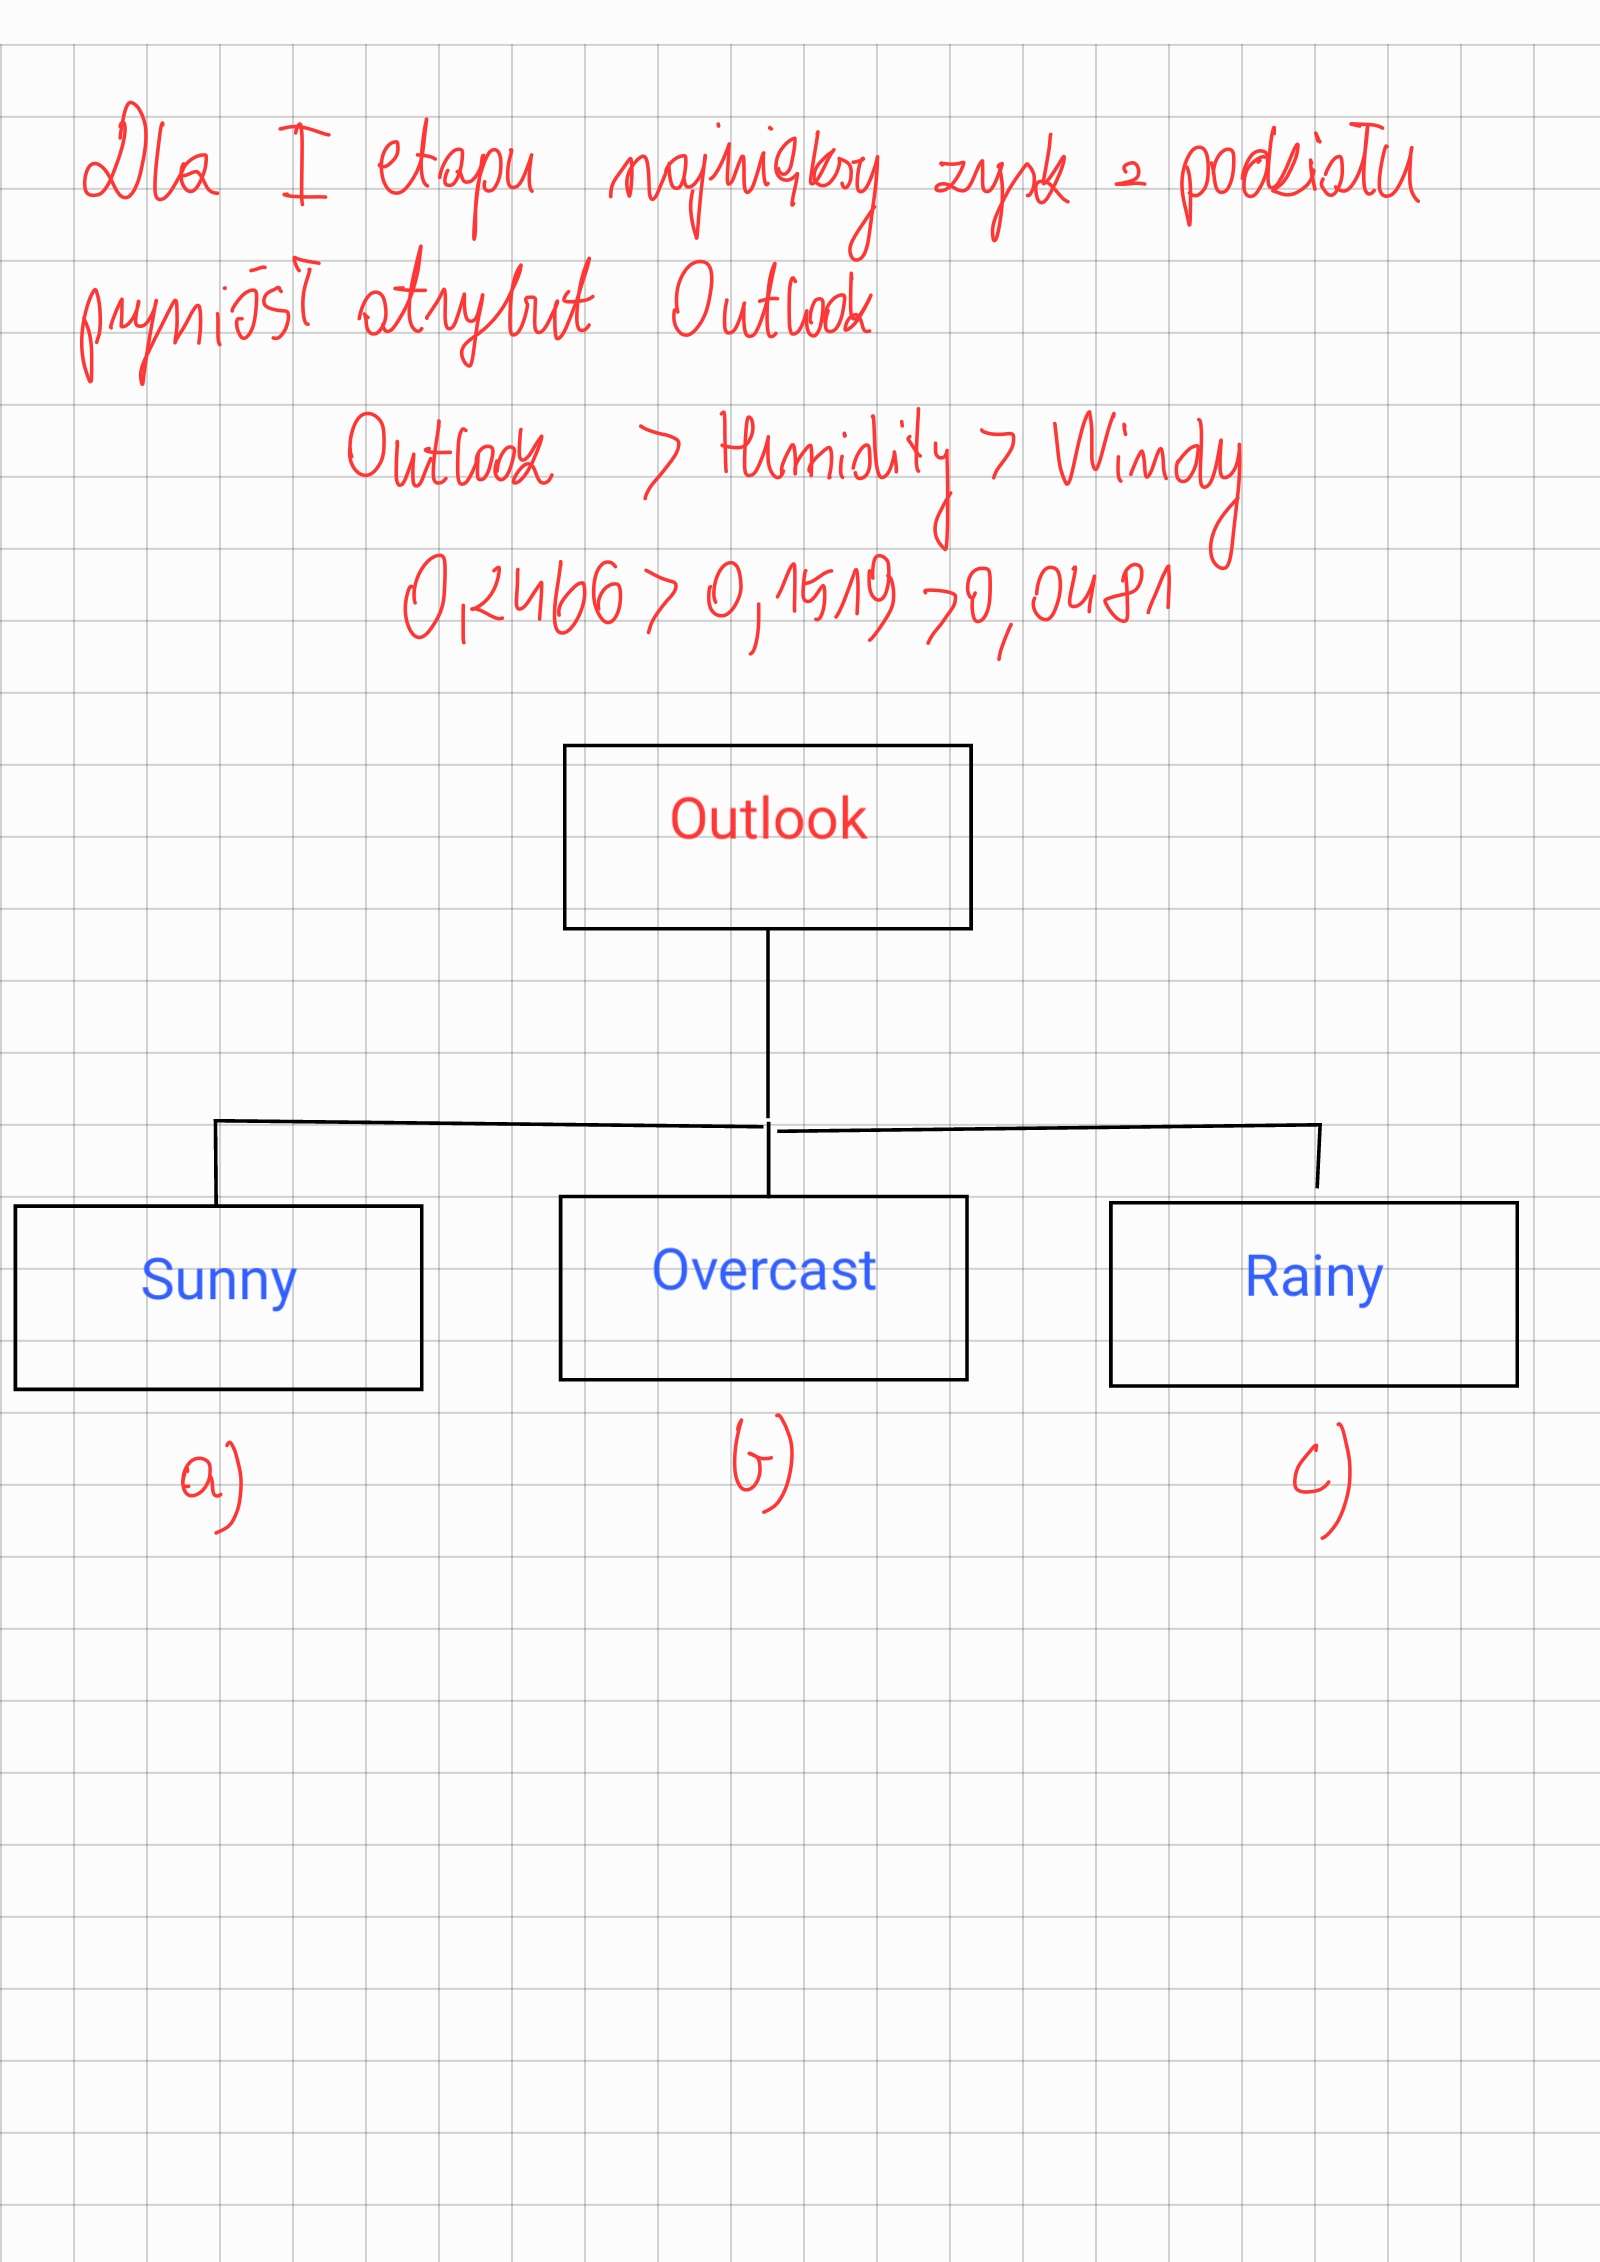 Dla I etapu największy zysk z podziału
przyniósł atrybut Outlook
Outlook > Humidity > Windy
0,2466 > 0,1519 > 0,0481
Outlook
Sunny Overcast Rainy
a) b) c)